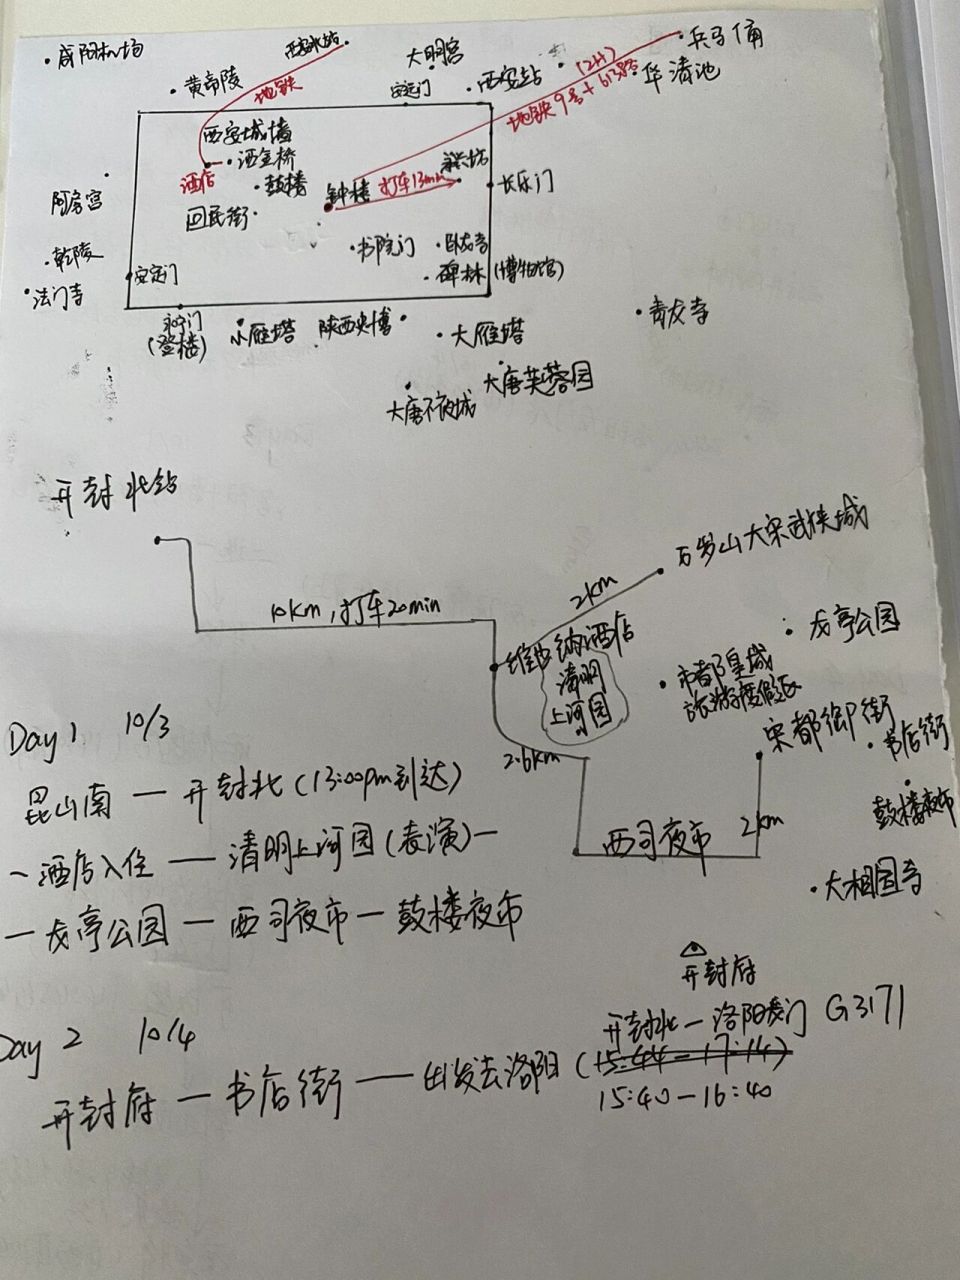 咸阳机场
西安北站
大明宫
兵马俑
黄帝陵
地铁
安定门
西安站
(2H)
华清池
地铁9号+613路
西安城墙
洒金桥
酒店
鼓楼
钟楼
打车13min
永兴坊
长乐门
阿房宫
回民街
书院门
卧龙寺
乾陵
安定门
碑林(博物馆)
法门寺
永宁门
(登楼)
小雁塔
陕西历博
大雁塔
青龙寺
大唐芙蓉园
大唐不夜城
开封北站
万岁山大宋武侠城
2km
10km,打车20min
龙亭公园
维也纳酒店
清明
上河园
宋都皇城
旅游度假区
宋都御街
书店街
2.6km
鼓楼夜市
西司夜市
2km
大相国寺
开封府
Day 1 10/3
昆山南 — 开封北(13:00pm到达)
— 酒店入住 — 清明上河园(表演)—
— 龙亭公园 — 西司夜市 — 鼓楼夜市
Day 2 10/4
开封北—洛阳龙门 G3171
开封府 — 书店街 — 出发去洛阳(15:44-17:14)
15:40-16:40